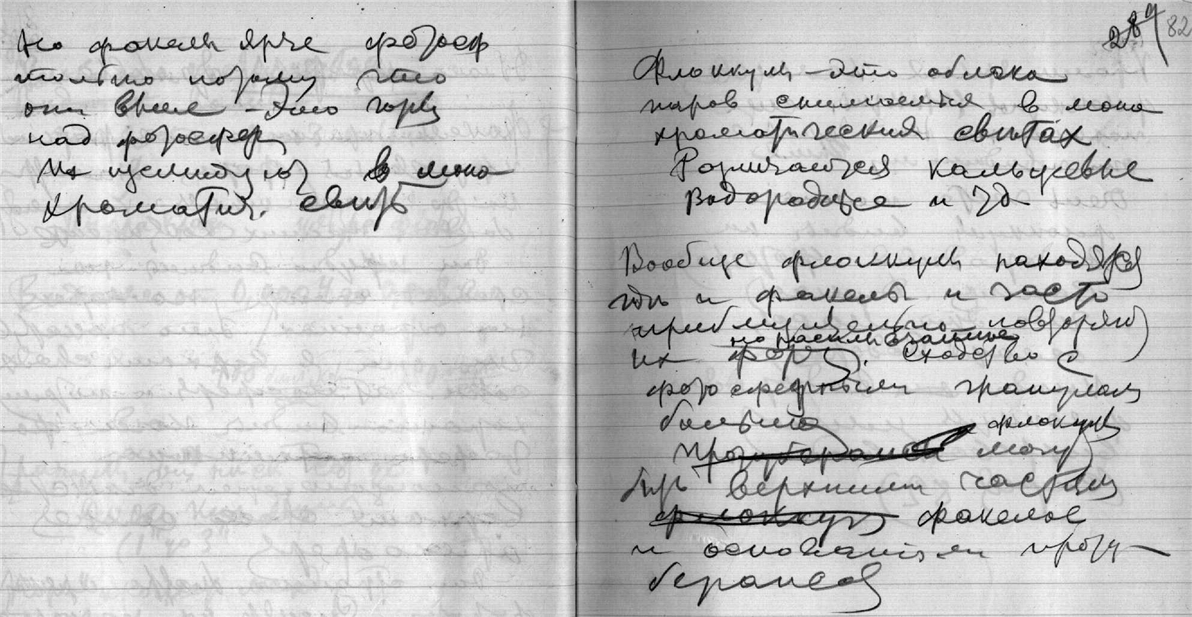 Но факелы ярче фотосф
только потому что
они выше - это горы
над фотосфер
Их 
хроматич. свить
289 82
Флоккулы - это облака
паров снимается в моно
хроматических свѣтах
Различаются кальциевые
Водородные и
Вообще флоккулы находятся
где и факелы и часто
приблизительно повторяют
но расплывчатые
их форму. Сходство с
фотосферными гранулам
большое флокулы
протуберанцы могут
быть верхними частям
флоккул факелов
и основаниям проту-
беранцев